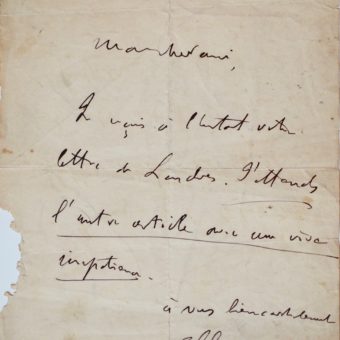 Mon cher ami,
Je reçois à l'instant votre
lettre de Londres. J'attends
l'autre article avec une vive
impatience.
à vous bien cordialement